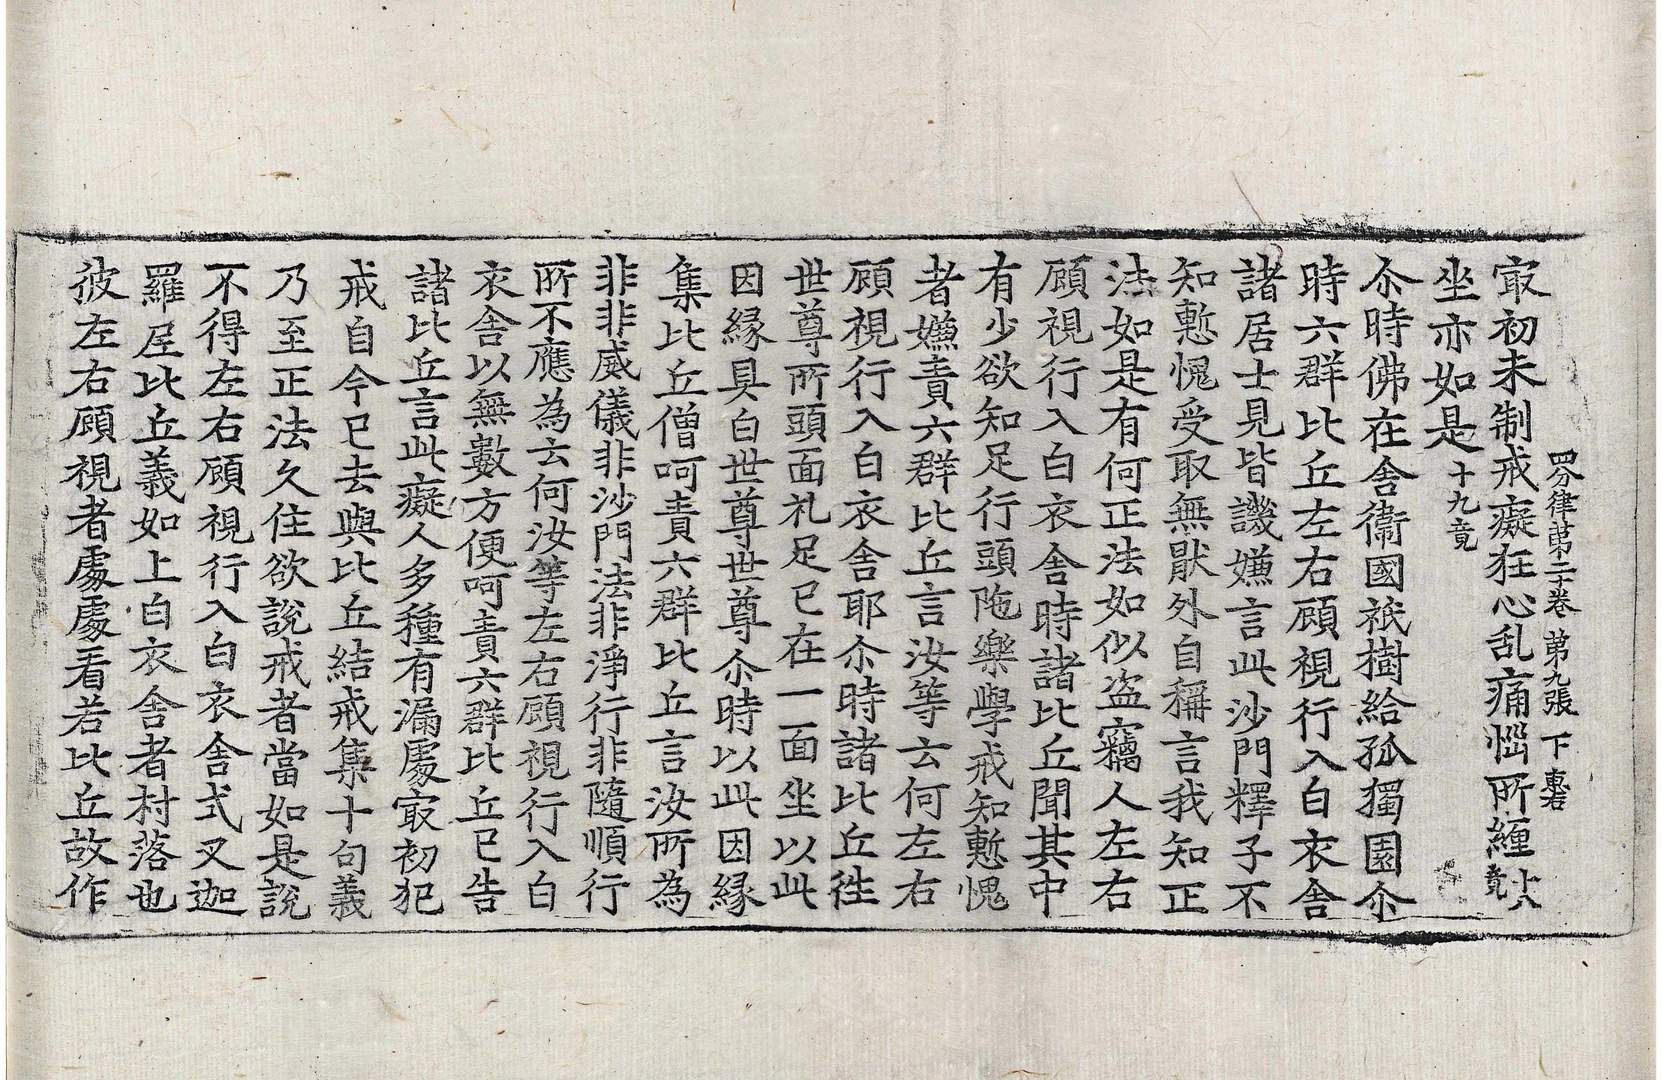 四分律苐二十卷 苐九張 下
㝡初未制戒癡狂心乱痛惱所纏十八竟
坐亦如是十九竟
尒時佛在舍衛國祇樹給孤獨園尒
時六群比丘左右顧視行入白衣舍
諸居士見皆譏嫌言此沙門釋子不
知慙愧受取無猒外自稱言我知正
法如是有何正法如似盗竊人左右
顧視行入白衣舍時諸比丘聞其中
有少欲知足行頭陁樂學戒知慙愧
者嫌責六群比丘言汝等云何左右
顧視行入白衣舍耶尒時諸比丘徃
世尊所頭面礼足已在一面坐以此
因縁具白世尊世尊尒時以此因縁
集比丘僧呵責六群比丘言汝所為
非非威儀非沙門法非淨行非隨順行
所不應為云何汝等左右顧視行入白
衣舍以無數方便呵責六群比丘已告
諸比丘言此癡人多種有漏處㝡初犯
戒自今已去與比丘結戒集十句義
乃至正法久住欲說戒者當如是說
不得左右顧視行入白衣舍式叉迦
羅尼比丘義如上白衣舍者村落也
彼左右顧視者處處看若比丘故作